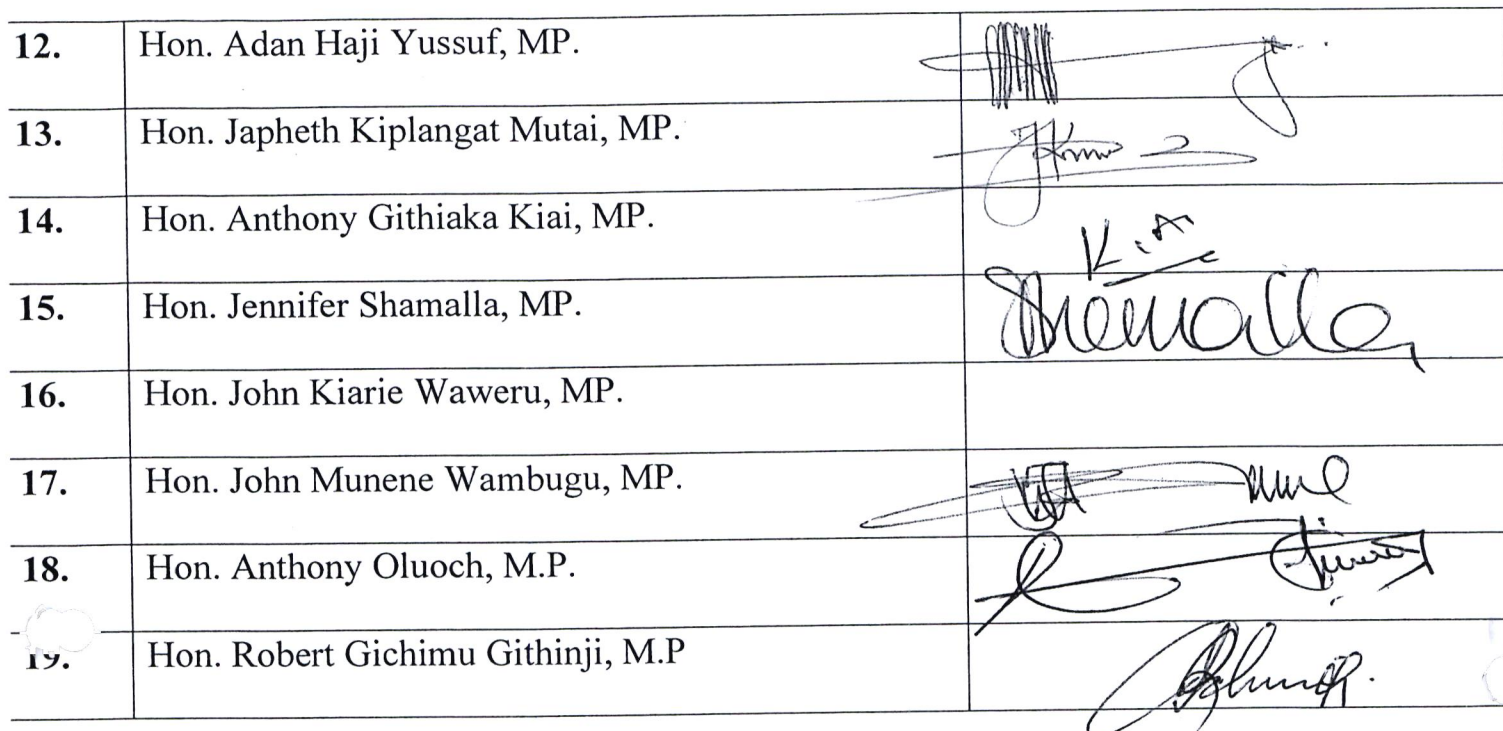 12. Hon. Adan Haji Yussuf, MP.
13. Hon. Japheth Kiplangat Mutai, MP.
14. Hon. Anthony Githiaka Kiai, MP.
15. Hon. Jennifer Shamalla, MP. Shamalla
16. Hon. John Kiarie Waweru, MP.
17. Hon. John Munene Wambugu, MP.
18. Hon. Anthony Oluoch, M.P.
19. Hon. Robert Gichimu Githinji, M.P